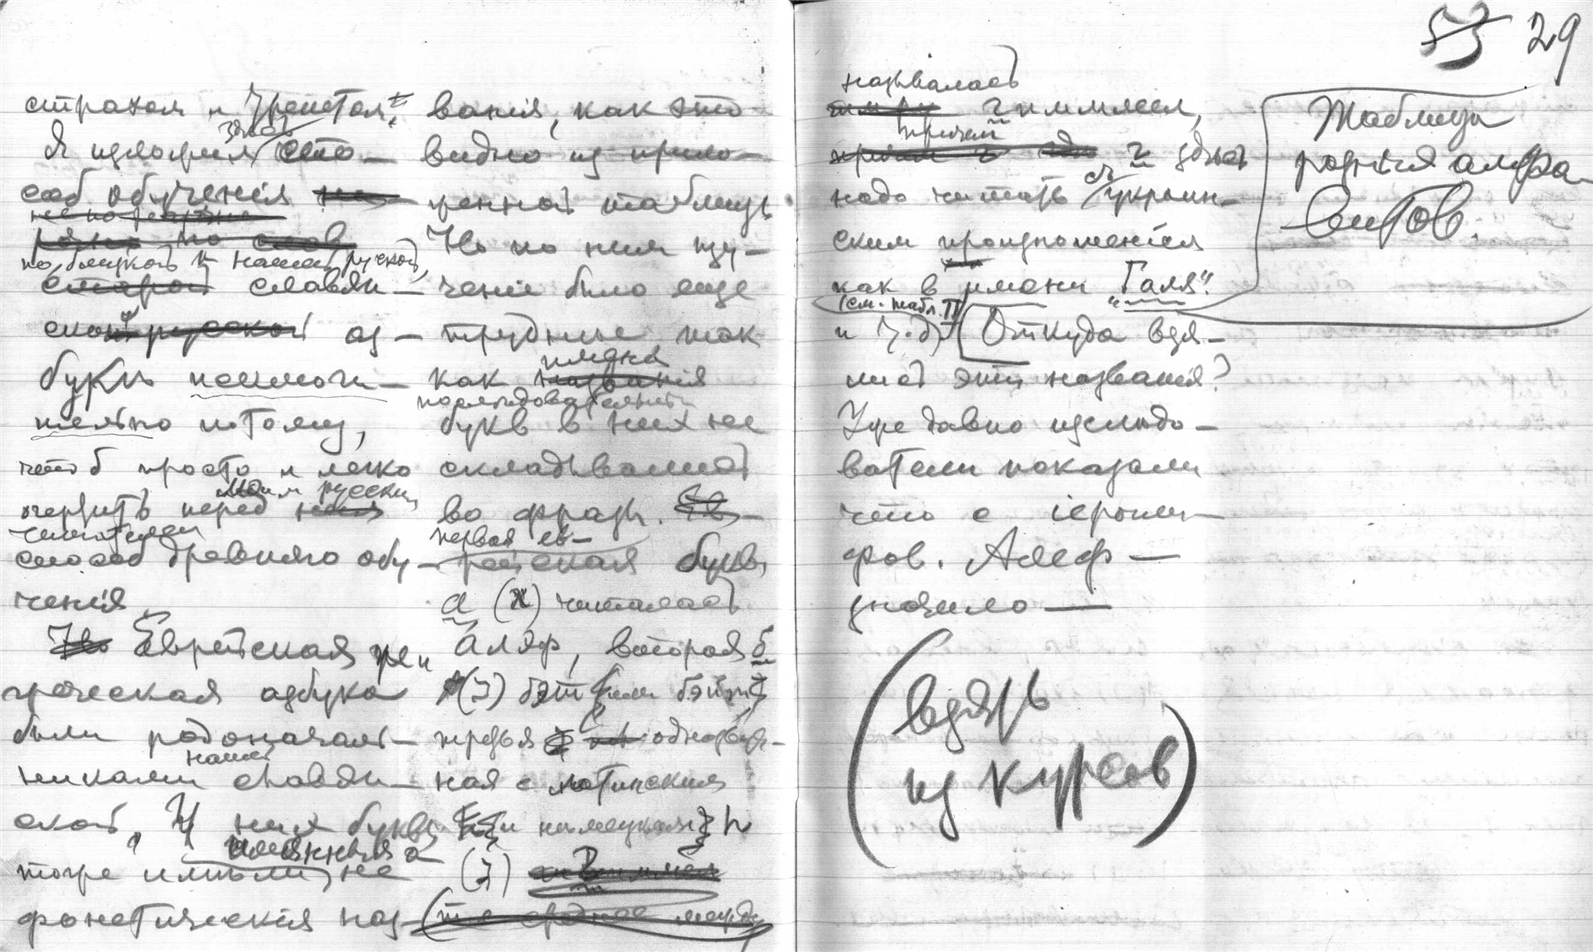 страхом и трепетом.
Я изложил здѣсь спо-
соб обученія
по близкой к нашей русской,
славян-
ской аз-
букѣ исключи-
тельно потому,
чтоб просто и легко
очертить перед моим русским
читателем
способ древняго обу-
ченія.
Еврейская и
греческая азбука
были родоначаль-
никами нашей славян-
ской. И у них буквы
тоже имѣли не
фонетическія наз-
ванія, как это
видно из прило-
женной таблицы.
Но по ним изу-
ченіе было еще
труднѣе так
как имена
последовательных
букв в них не
складывались
во фразы.
первая ев-
рейская буква
а (א) читалась
Аляф, вторая б
(ב) бэт или бэйт
третья однозвуч-
ная с латинским
и нѣмецким h
(ג)
называлась
гиммлем,
причем г здѣсь
надо читать съ украин-
ским произношеніем
как в имени „Галя".
(см. табл. II)
и т. д. Откуда взя-
лись эти названія?
Уже давно изслѣдо-
ватели показали
что с іерогли-
фов. Алеф —
значило —
(взять
из курсов)
53 29
Таблица
родныя алфа-
витов.